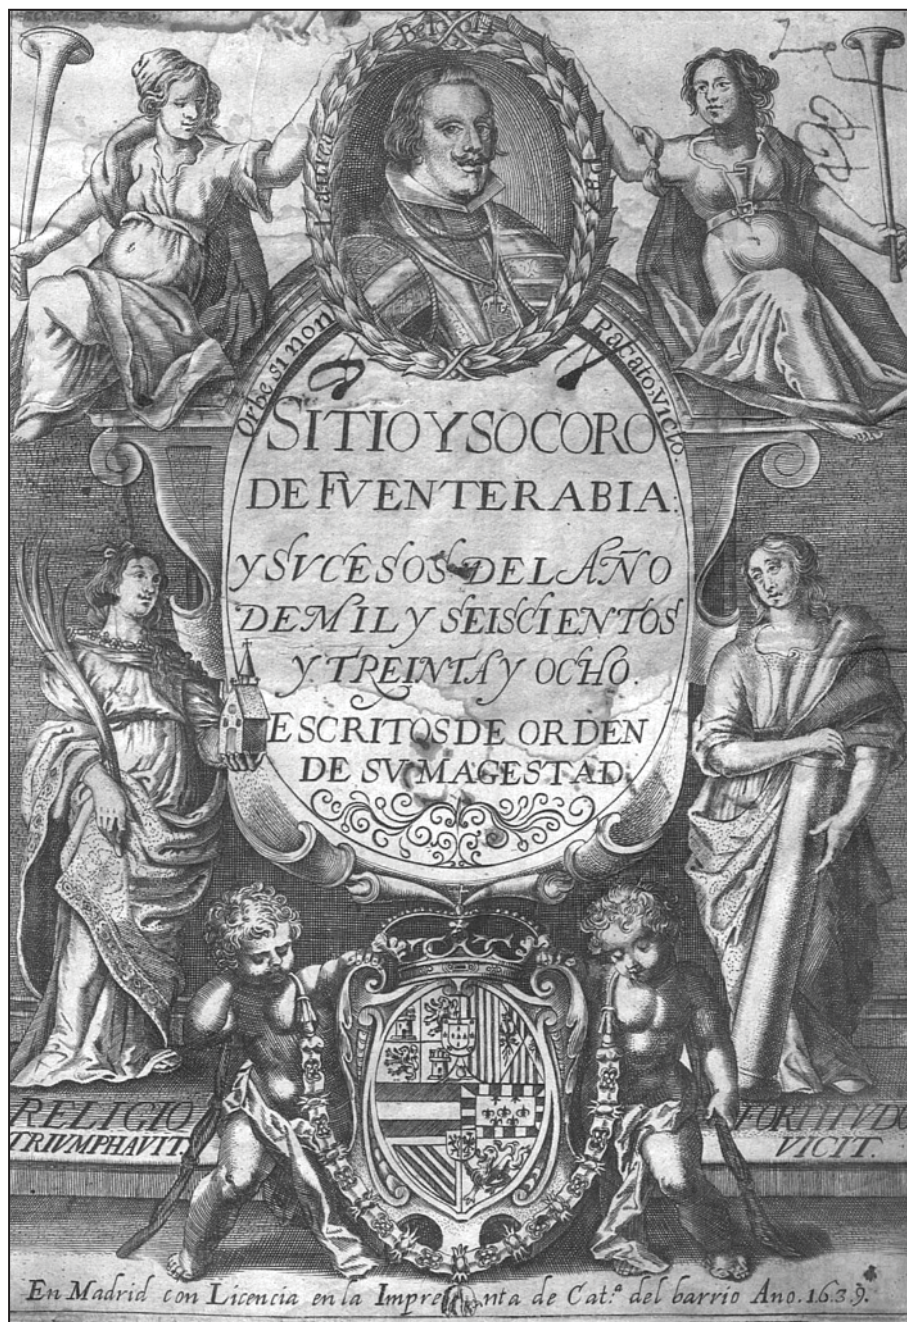 Orbe, si non Pacato, victo.
SITIO Y SOCORO
DE FVENTERABIA.
Y SVCESOS DEL AÑO
DE MIL Y SEISCIENTOS
Y TREINTA Y OCHO.
ESCRITOS DE ORDEN
DE SV MAGESTAD.
RELIGIO
TRIVMPHAVIT.
FORTITUDO
VICIT.
En Madrid con Licencia en la Imprenta de Cat.ª del barrio Ano. 1639.